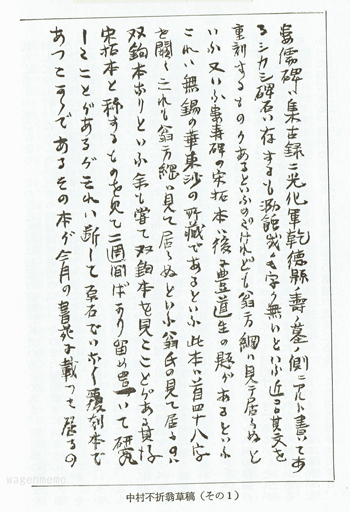 婁壽碑ハ集古録ニ光化軍乾徳縣ノ壽ノ墓ノ側ニアルト書いてあ
るシカシ碑石ハ存するも泐蝕 字も無いといふ 其文を
重刻するものがあるといふのだけれども翁方綱ハ見て居らぬと
いふ又いふ婁壽碑の宋拓本ハ後ニ豊道生の題があるといふ
これハ無錫の華東沙の所蔵であるといふ此本ハ百四十八字
を闕くこれも翁方綱ハ見て居らぬといふ翁氏の見て居るのハ
双鉤本なりといふ余も嘗て双鉤本を見たことがある其後
宋拓本と称するものを見て二週間ばかり留め いて研究
したことがあるがそれハ断して真石でハなく覆刻本で
あつたやうであるその本が今月の書苑に載つて居るの
中村不折翁草稿（その1）
wagenmemo